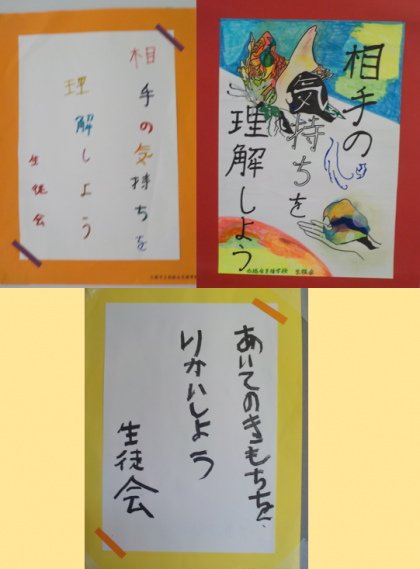 相手の気持ちを
理解しよう
生徒会
相手の
気持ちを
理解しよう
生徒会
あいてのきもちを
りかいしよう
生徒会